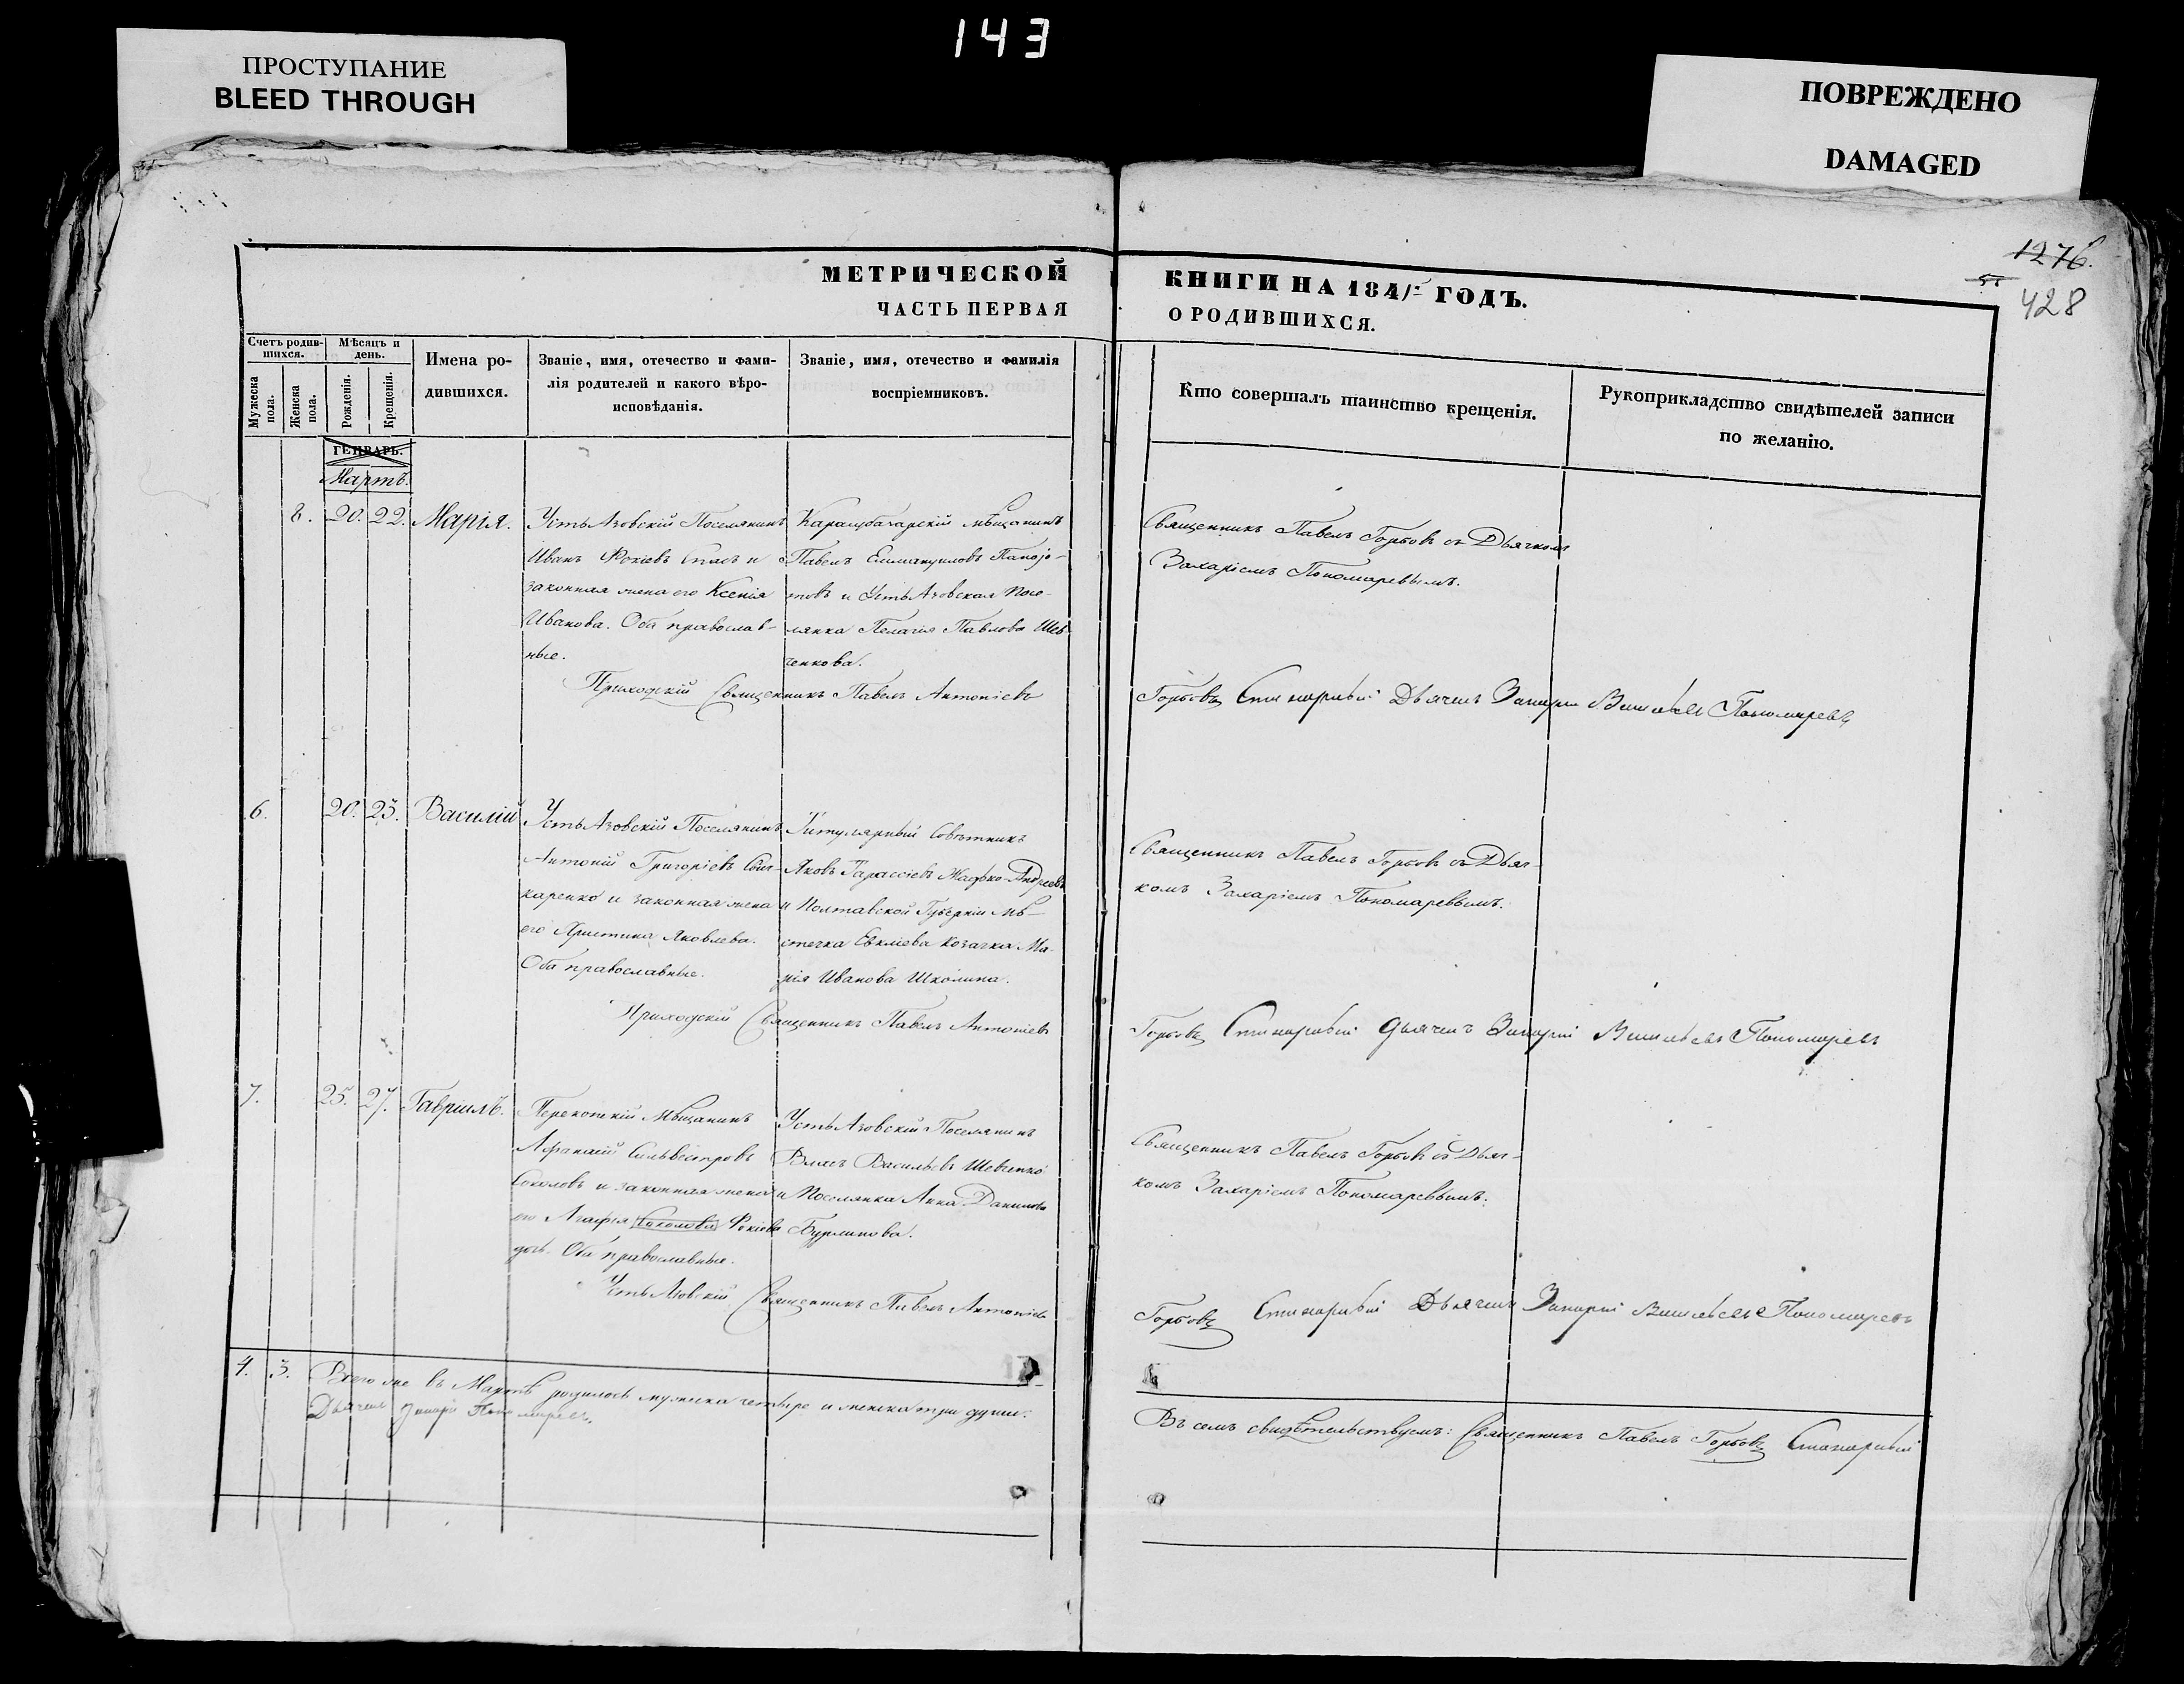 143
ПРОСТУПАНИЕ
BLEED THROUGH
ПОВРЕЖДЕНО
DAMAGED
1276.
428
МЕТРИЧЕСКОЙ
ЧАСТЬ ПЕРВАЯ
КНИГИ НА 1841 ГОДЪ.
О РОДИВШИХСЯ.
Счетъ родив-
шихся.
Мужеска
пола.
Женска
пола.
Мѣсяцъ и
день.
Рожденія.
Крещенія.
Имена ро-
дившихся.
Званіе, имя, отечество и фами-
лія родителей и какого вѣро-
исповѣданія.
Званіе, имя, отечество и фамилія
воспріемниковъ.
Кто совершалъ таинство крещенія.
Рукоприкладство свидѣтелей записи
по желанію.
ГЕНВАРЬ.
Мартъ.
8. 20. 22. Марія.
Усть Азовскій Поселянинъ
Иванъ Фокіевъ и
законная жена его Ксенія
Иванова. Оба православ-
ные.
Карасубазарскій мѣщанинъ
Павелъ Еммануиловъ Панаjо-
товъ и Усть Азовская Посе-
лянка Пелагія Павлова Шев-
ченкова.
Священникъ Павелъ Горбовъ съ Дьячкомъ
Захаріемъ Пономаревымъ.
Приходскій Священникъ Павелъ Антоніевъ
Горбовъ Дьячекъ Захарій Васильевъ Пономаревъ
6. 20. 23. Василій
Усть Азовскій Поселянинъ
Антоній Григоріевъ
каренко и законная жена
его Христина Яковлева.
Оба православные.
Титулярный Совѣтникъ
Яковъ Тарасіевъ Андреевъ
и Полтавской Губерніи Мѣ-
стечка козачка Ма-
рія Иванова Школина.
Священникъ Павелъ Горбовъ съ Дьяч-
комъ Захаріемъ Пономаревымъ.
Приходскій Священникъ Павелъ Антоніевъ
Горбовъ дьячекъ Захарій Васильевъ Пономаревъ
7. 25. 27. Гавріилъ.
Перекопскій Мѣщанинъ
Афанасій Сильвестровъ
Соколовъ и законная жена
его Агафія Соколова Фокіева
дочь. Оба православные.
Усть Азовскій Поселянинъ
Власъ Васильевъ Шевченко
и Поселянка Анна Данилова
Бурлинова.
Священникъ Павелъ Горбовъ съ Дьяч-
комъ Захаріемъ Пономаревымъ.
Усть Азовскій Священникъ Павелъ Антоніевъ
Горбовъ Дьячекъ Захарій Васильевъ Пономаревъ
4. 3. Всего же въ Мартѣ родилось мужеска четыре и женска три души.
Дьячекъ Захарій Пономаревъ.
Въ семъ свидѣтельствуемъ: Священникъ Павелъ Горбовъ